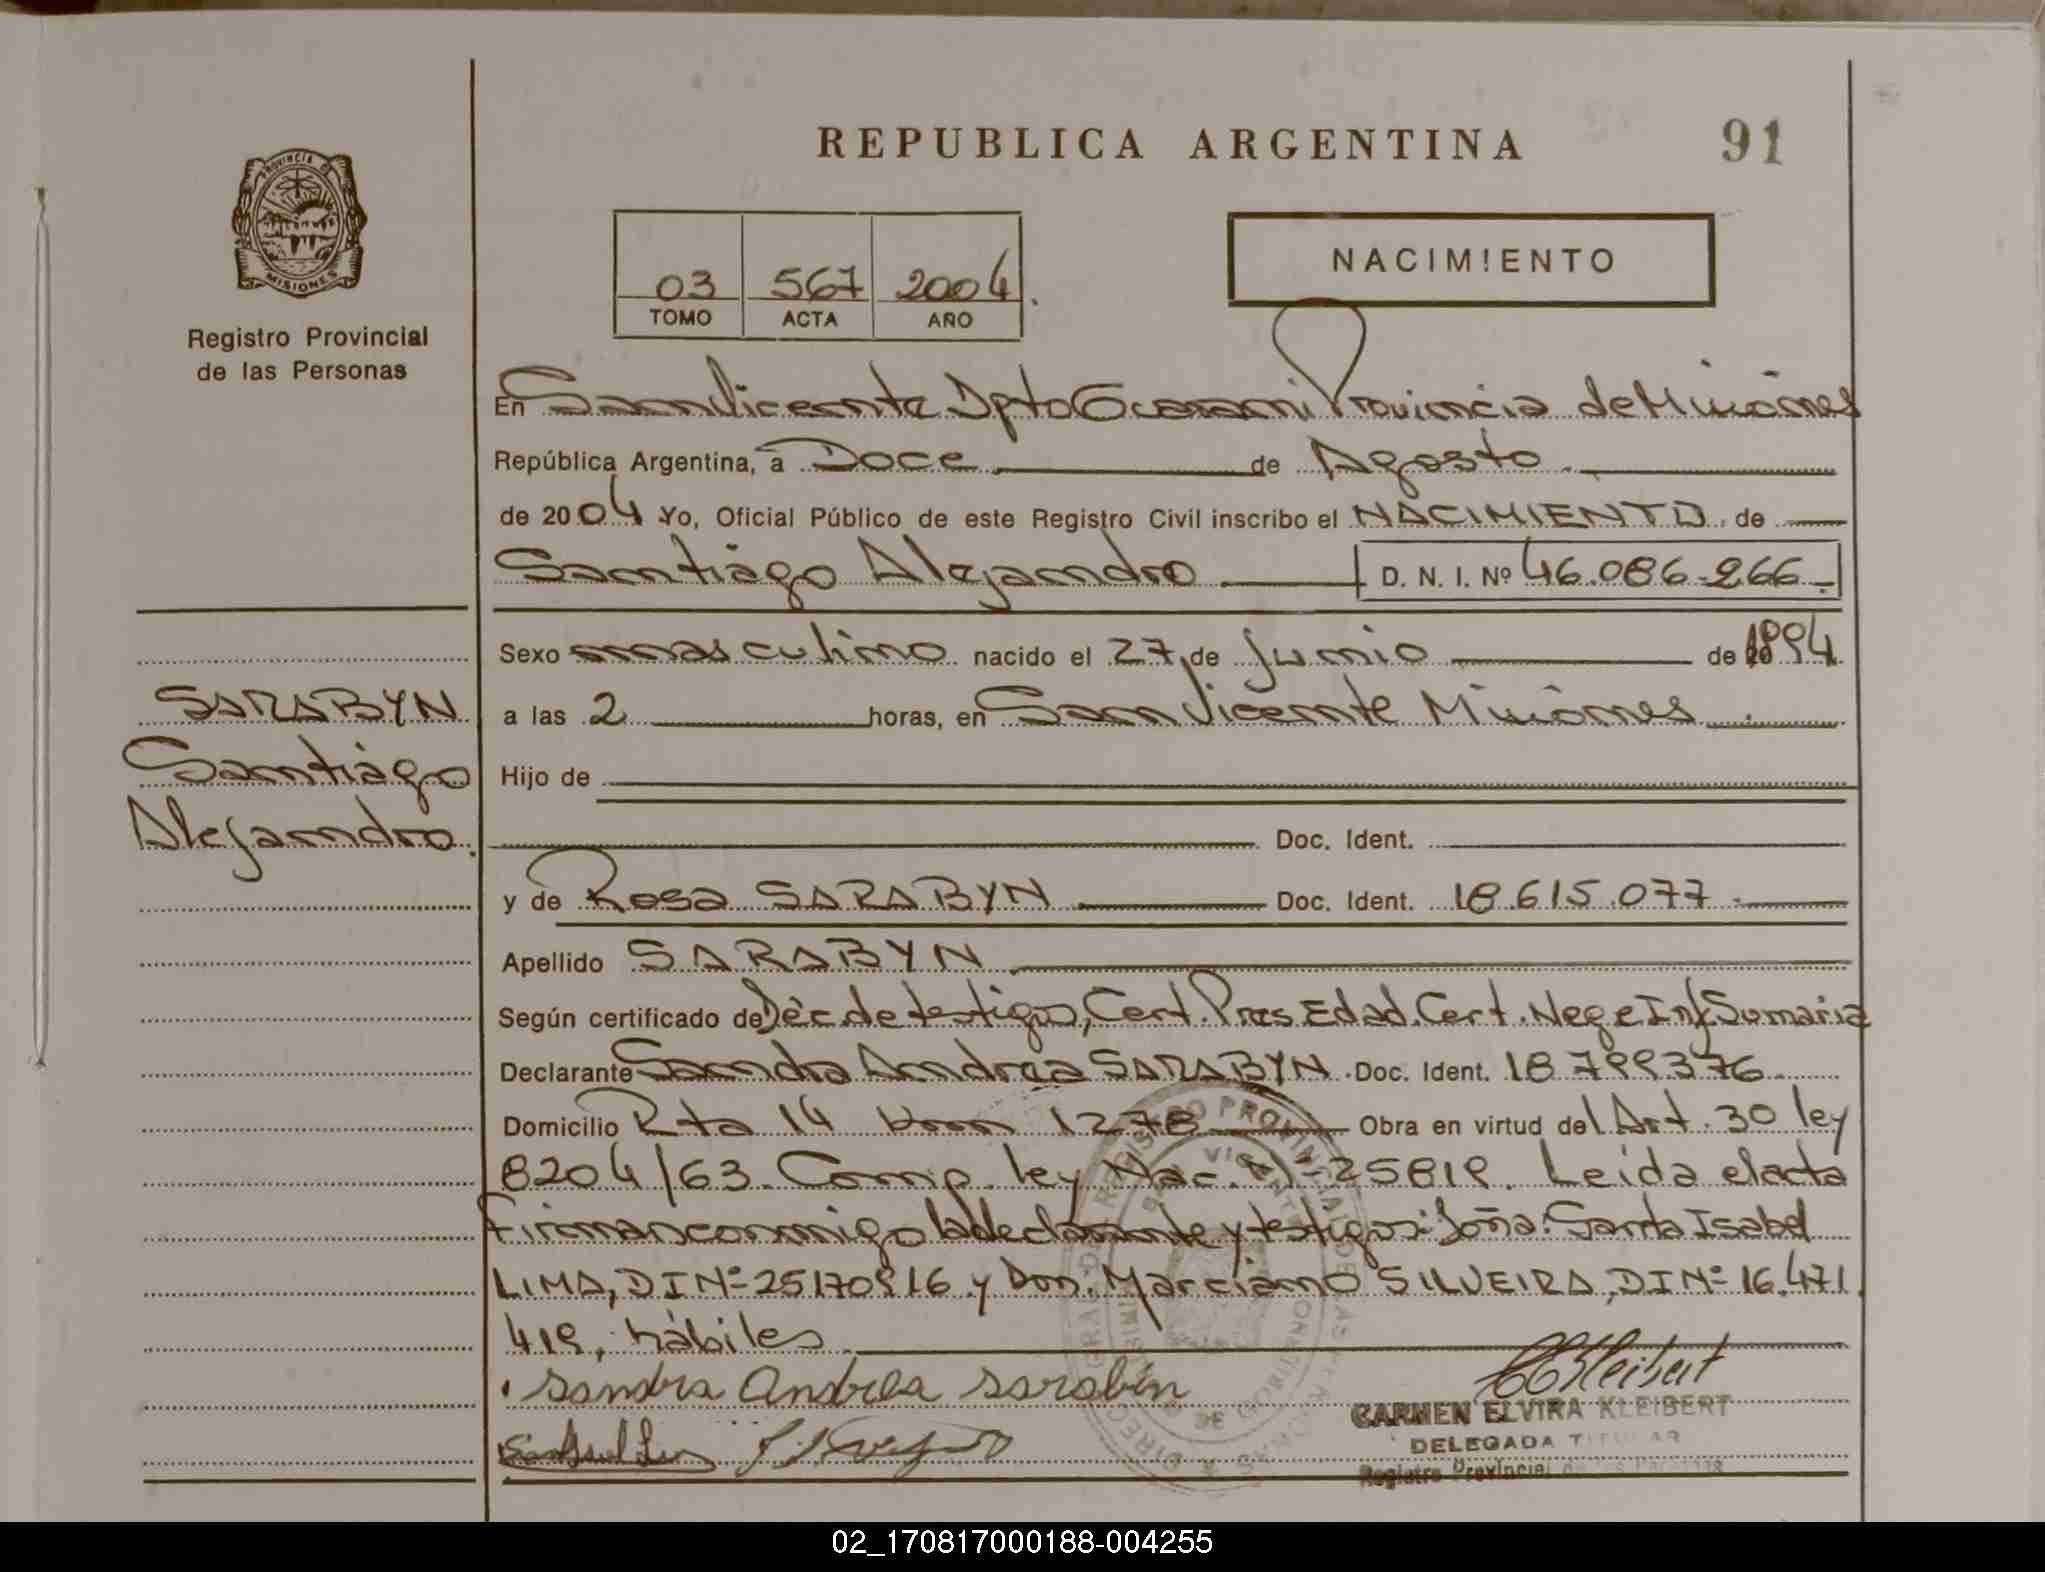 REPUBLICA ARGENTINA
91
PROVINCIA D
MISIONES
Registro Provincial
de las Personas
03 567 2004
TOMO ACTA AÑO
NACIMIENTO
En San Vicente Dpto Guarani Provincia de Misiones
República Argentina, a Doce de Agosto
de 2004 Yo, Oficial Público de este Registro Civil inscribo el NACIMIENTO de
Santiago Alejandro D. N. I. Nº 46.086.266
Sexo masculino nacido el 27 de Junio de 1994
SARABYN
Santiago
Alejandro.
a las 2 horas, en San Vicente Misiones
Hijo de
Doc. Ident.
y de Rosa SARABYN Doc. Ident. 18.615.077
Apellido SARABYN
Según certificado de Dec. de testigos, Cert. Pres. Edad. Cert. Neg e Inf. Sumaria
Declarante Sandra Andrea SARABYN. Doc. Ident. 18 799376
Domicilio Rta 14 Km 1278 Obra en virtud del Art. 30 ley
8204/63. Comp. ley Nac. Nº 25819. Leida el acta
firman conmigo la declarante y testigos: Doña: Santa Isabel
LIMA, DI Nº 25170916 y Don. Marciano SILVEIRA, DI Nº 16.471.
419, hábiles
Sandra Andrea Sarabin
CEKleibert
CARMEN ELVIRA KLEIBERT
DELEGADA TITULAR
Registro Provincial de las Personas
02_170817000188-004255